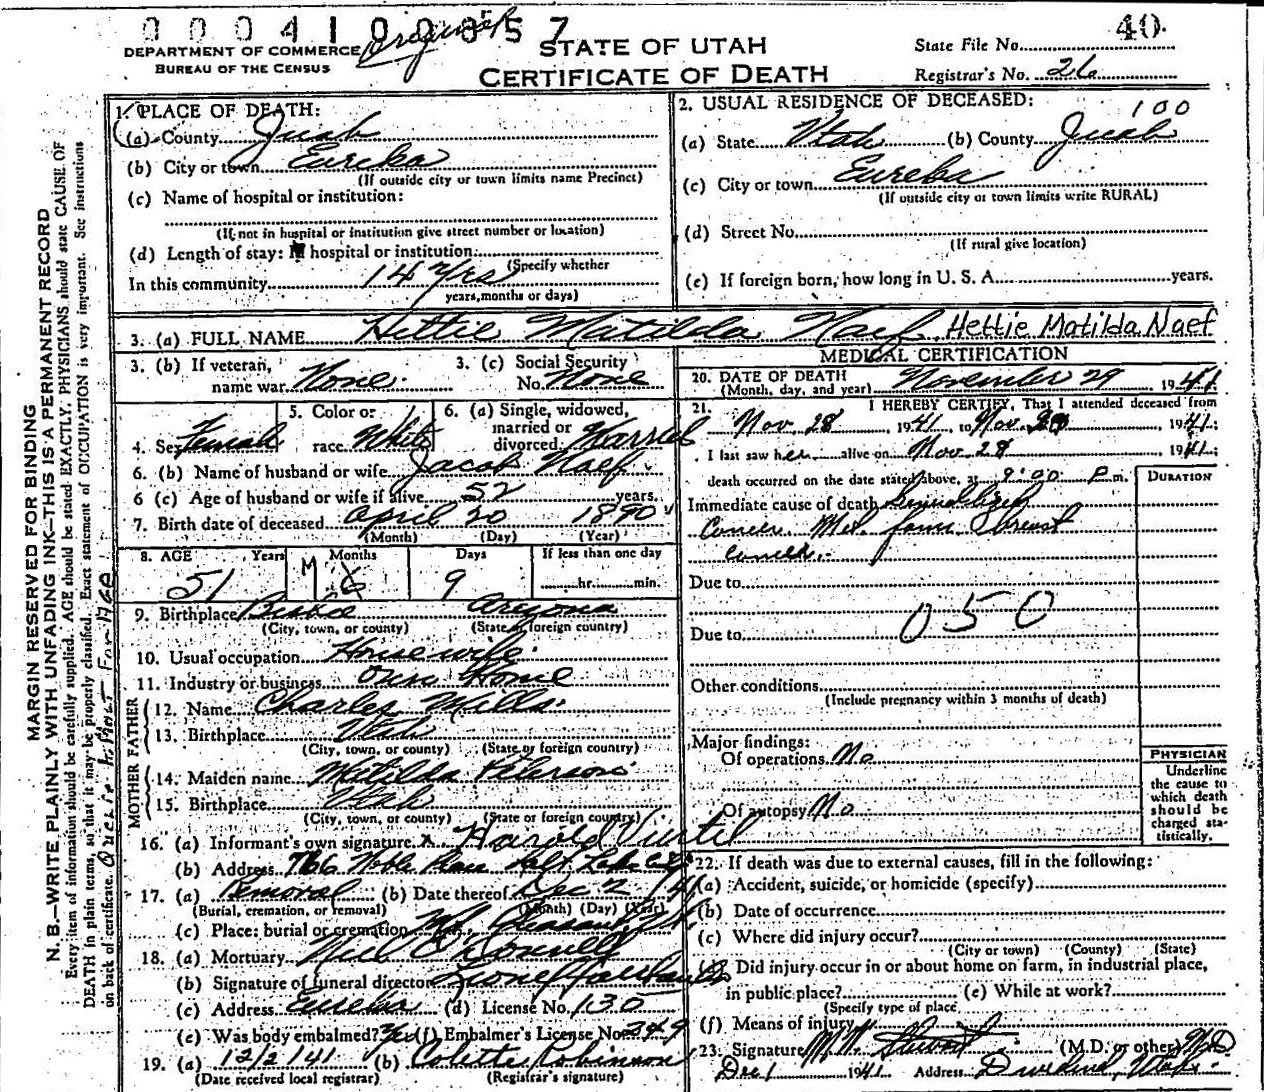 0 0 0 4 1 0 0 8 5 7
DEPARTMENT OF COMMERCE
BUREAU OF THE CENSUS
STATE OF UTAH
CERTIFICATE OF DEATH
40
State File No.
Registrar's No. 26
MARGIN RESERVED FOR BINDING
N. B.—WRITE PLAINLY WITH UNFADING INK—THIS IS A PERMANENT RECORD
Every item of information should be carefully supplied. AGE should be stated EXACTLY. PHYSICIANS should state CAUSE OF
DEATH in plain terms, so that it may be properly classified. Exact statement of OCCUPATION is very important. See instructions
on back of certificate.
1. PLACE OF DEATH:
(a) County Juab
(b) City or town Eureka
(If outside city or town limits name Precinct)
(c) Name of hospital or institution:
(If not in hospital or institution give street number or location)
(d) Length of stay: In hospital or institution:
(Specify whether
In this community 14 Yrs
years, months or days)
2. USUAL RESIDENCE OF DECEASED:
100
(a) State Utah (b) County Juab
(c) City or town Eureka
(If outside city or town limits write RURAL)
(d) Street No.
(If rural give location)
(e) If foreign born, how long in U. S. A. years.
3. (a) FULL NAME Hettie Matilda Naef Hettie Matilda Naef
3. (b) If veteran, name war None
3. (c) Social Security No. None
4. Sex Female
5. Color or race White
6. (a) Single, widowed, married or divorced Married
6. (b) Name of husband or wife Jacob Naef
6 (c) Age of husband or wife if alive 52 years.
7. Birth date of deceased April 20 1890
(Month) (Day) (Year)
8. AGE Years Months Days If less than one day
51 M 6 9 hr. min.
9. Birthplace Bisbee Arizona
(City, town, or county) (State or foreign country)
10. Usual occupation Housewife
11. Industry or business Own Home
FATHER
12. Name Charles Mills
13. Birthplace Utah
(City, town, or county) (State or foreign country)
MOTHER
14. Maiden name Matilda Peterson
15. Birthplace Utah
(City, town, or county) (State or foreign country)
16. (a) Informant's own signature x Harold
(b) Address 766 Noble Place Salt Lake City
17. (a) Removal (b) Date thereof Dec 2 / 41
(Burial, cremation, or removal) (Month) (Day) (Year)
(c) Place: burial or cremation Mt. Pleasant, Ut.
18. (a) Mortuary O'Donnell
(b) Signature of funeral director
(c) Address Eureka (d) License No. 135
(e) Was body embalmed? (f) Embalmer's License No. 349
19. (a) 12/2/41 (b) Colette Robinson
(Date received local registrar) (Registrar's signature)
MEDICAL CERTIFICATION
20. DATE OF DEATH
(Month, day, and year) November 29 1941
21. I HEREBY CERTIFY, That I attended deceased from
Nov. 28, 1941, to Nov. 1941;
I last saw her alive on Nov 28 1941;
death occurred on the date stated above, at 9:00 P m.
DURATION
Immediate cause of death Generalized
Cancer Met. from breast
cancer.
Due to
050
Due to
Other conditions
(Include pregnancy within 3 months of death)
Major findings:
Of operations No
Of autopsy No
PHYSICIAN
Underline
the cause to
which death
should be
charged sta-
tistically.
22. If death was due to external causes, fill in the following:
(a) Accident, suicide, or homicide (specify)
(b) Date of occurrence
(c) Where did injury occur?
(City or town) (County) (State)
(d) Did injury occur in or about home on farm, in industrial place,
in public place? (e) While at work?
(Specify type of place
(f) Means of injury
23. Signature Stewart (M.D. or other) MD
Dec 1 1941 Address Dividend, Utah